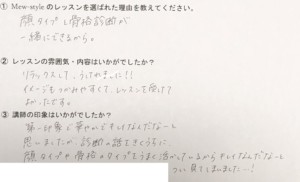 ① Mew-styleのレッスンを選ばれた理由を教えてください。
顔タイプと骨格診断が
一緒にできるから。
② レッスンの雰囲気・内容はいかがでしたか？
リラックスして、うけやすい!!
イメージもつかみやすくて、レッスンを受けて
よかったです。
③ 講師の印象はいかがでしたか？
第一印象で華やかでキレイなんだなーと
思いましたが、診断の話をきくうちに
顔タイプや骨格のタイプをうまく活かしているからキレイなんだなーと
つい見てしまいました…!